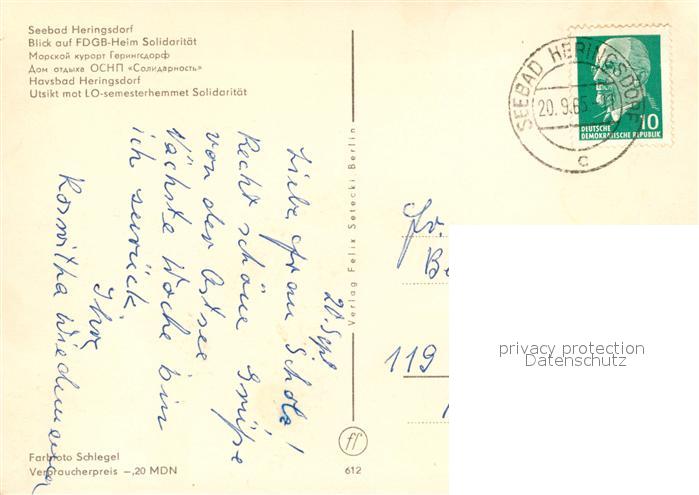 Seebad Heringsdorf
Blick auf FDGB-Heim Solidarität
Морской курорт Герингсдорф
Дом отдыха ОСНП «Солидарность»
Havsbad Heringsdorf
Utsikt mot LO-semesterhemmet Solidarität
SEEBAD HERINGSDORF
20.9.65
c
10
DEUTSCHE
DEMOKRATISCHE REPUBLIK
20. Sept
Liebe Frau Scholz!
Recht schöne Grüße
von der Ostsee
Nächste Woche bin
ich zurück.
Ihre
Roswitha
Verlag Felix Setecki Berlin
Fr.
Be
119
privacy protection
Datenschutz
Farbfoto Schlegel
Verbraucherpreis –,20 MDN
ff
612